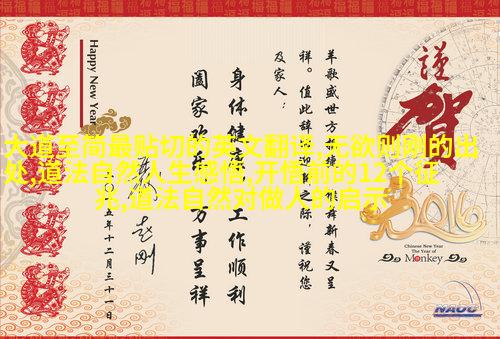 大道至简最贴切的英文翻译,无欲则刚的出
处,道法自然人生感悟,开悟前的12个征
兆,道法自然对做人的启示
謹
賀
2016
Chinese New Year
The Year of
Monkey
羊歌盛世方 舞新春又呈
祥。值此辞 之际，谨祝您
及家人：
身体健康 工作顺利
阖家欢乐 万事呈祥
五年十二月三十一日
Happy New Year
NAOC